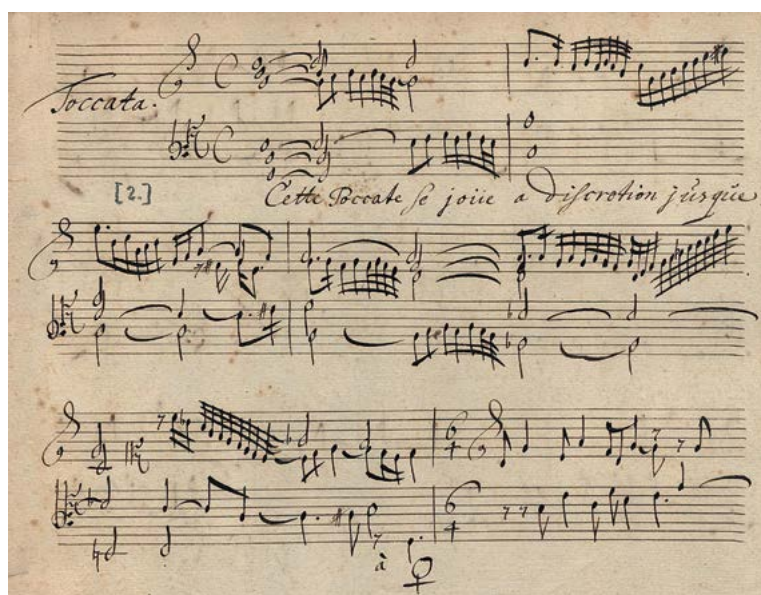 Toccata.
[2.]
Cette Toccate se joüe a discrotion jusque
6
4
6
4
à